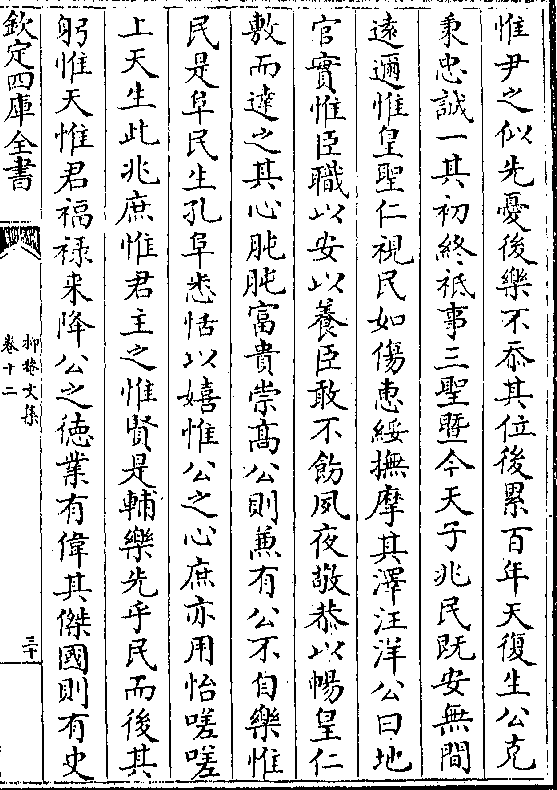 惟尹之似先憂後樂不忝其位後累百年天復生公克
秉忠誠一其初終祇事三聖曁今天子兆民既安無間
遠邇惟皇聖仁視民如傷惠綏撫摩其澤汪洋公曰地
官實惟臣職以安以養臣敢不飭夙夜敬恭以暢皇仁
敷而達之其心肫肫富貴崇髙公則兼有公不自樂惟
民是阜民生孔阜悉恬以嬉惟公之心庶亦用怡嗟嗟
上天生此兆庶惟君主之惟賢是輔樂先乎民而後其
躬惟天惟君福禄来降公之徳業有偉其傑國則有史
欽定四庫全書
抑菴文集
卷十二
三十